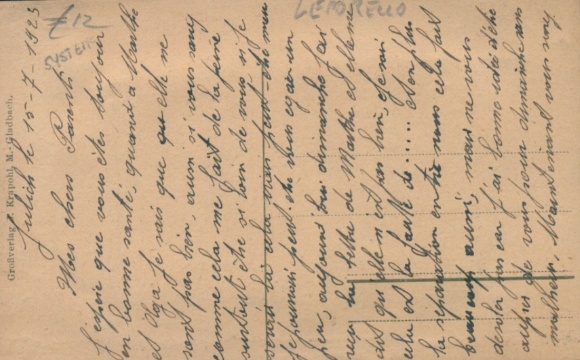 £12
LEPORELLO
SYSTEM
Großverlag F. Krapohl, M.-Gladbach.
Julich le 15-7-1923
Mes chers Parents
J'espère que vous êtes toujours
en bonne santé, quand à Marthe
et Olga je sais que elle ne
sont pas bien, aussi si vous
comme cela me fait de la peine
surtout être si loin de vous si je
serais là cela irais peut-être mieux
je pourrais peut être
peu, aujourd'hui dimanche j'ai
reçu la lettre de Marthe et elle me
dit qu'elle n'est pas bien
cela est la faute de .....
la séparation entre nous cela fait
beaucoup aussi, mais ne vous
désolez pas car j'ai bonne idée d'être
auprès de vous pour dimanche sans
malheur, Maintenant vous